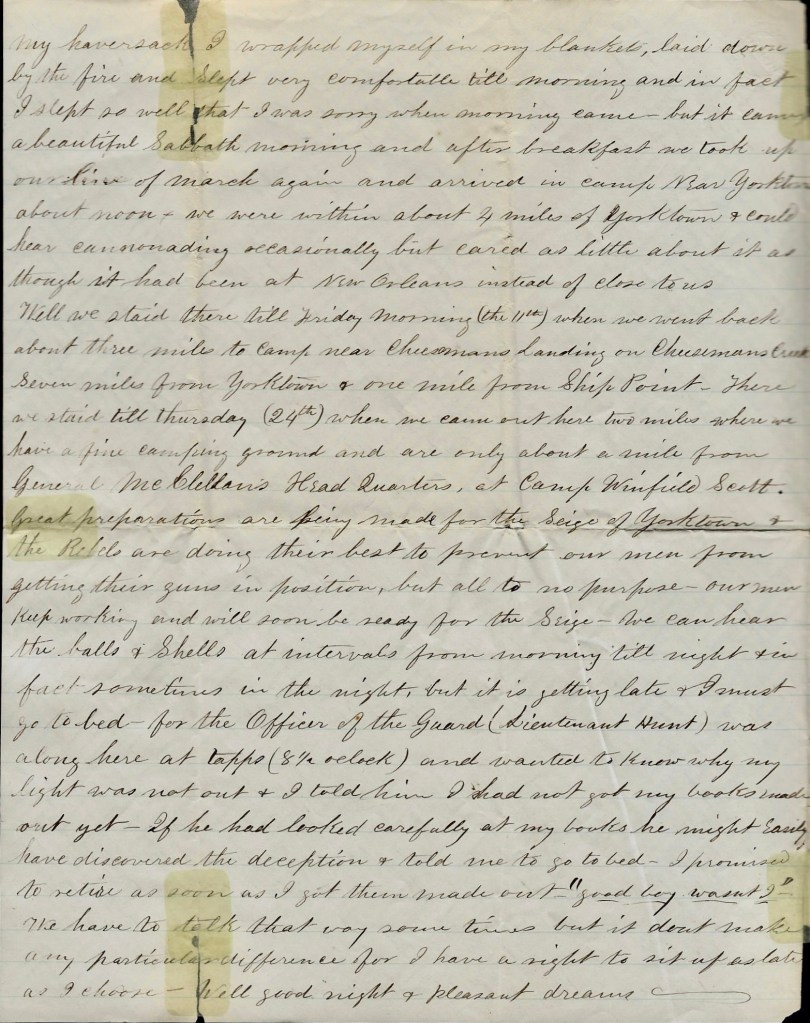 my haversack I wrapped myself in my blankets, laid down
by the fire and slept very comfortable till morning and in fact
I slept so well that I was sorry when morning came - but it came
a beautiful Sabbath morning and after breakfast we took up
our line of march again and arrived in camp Near Yorktown
about noon + we were within about 4 miles of Yorktown & could
hear cannonading occasionally but cared as little about it as
though it had been at New Orleans instead of close to us
Well we staid there till Friday morning (the 11th) when we went back
about three miles to camp near Cheesemans Landing on Cheesemans Creek
Seven miles from Yorktown & one mile from Ship Point - There
we staid till thursday (24th) when we came out here two miles where we
have a fine camping ground and are only about a mile from
General McClellan's Head Quarters, at Camp Winfield Scott.
Great preparations are being made for the Seige of Yorktown &
the Rebels are doing their best to prevent our men from
getting their guns in position, but all to no purpose - our men
Keep working and will soon be ready for the Seige - We can hear
the balls & Shells at intervals from morning till night & in
fact sometimes in the night, but it is getting late & I must
go to bed - for the Officer of the Guard (Lieutenant Hunt) was
along here at tapps (8½ oclock) and wanted to Know why my
light was not out & I told him I had not got my books made
out yet - If he had looked carefully at my books he might Easily
have discovered the deception & told me to go to bed - I promised
to retire as soon as I got them made out - "good boy wasnt I" -
We have to talk that way some times but it dont make
any particular difference for I have a right to sit up as late
as I choose - Well good night & pleasant dreams